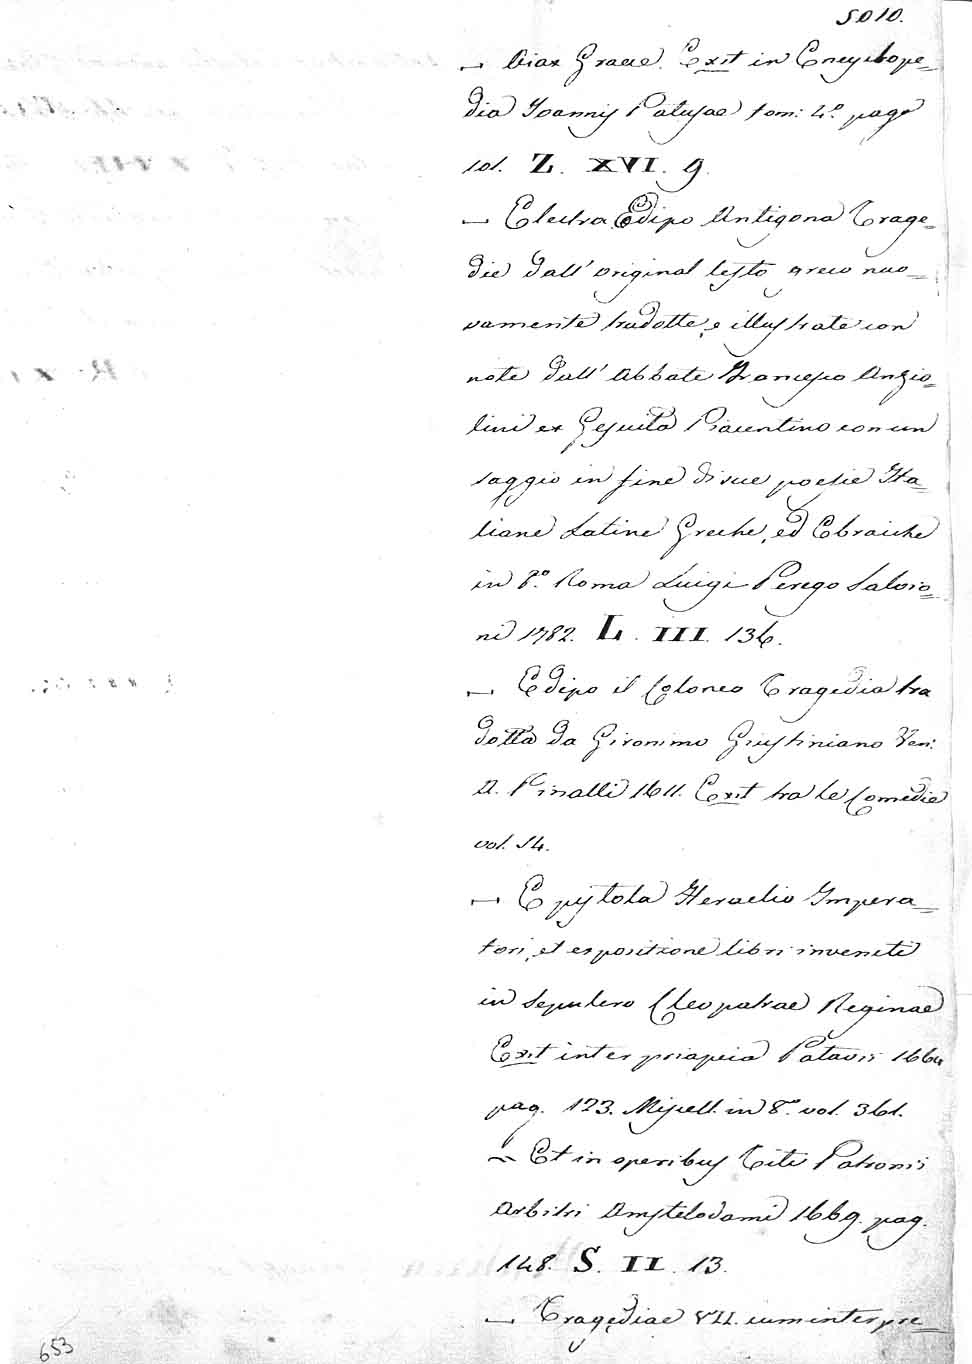 5010.
— Aiax Graece. Exit in Encyclope=
dia Joannis Patusae tom: 4.° pag.
101. Z. XVI. 9.
— Electra, Edipo Antigona Trage=
die dall' original testo greco nuo=
vamente tradotte, e illustrate con
note dall' Abbate Francesco Angio=
lini ex Gesuita Piacentino con un
saggio in fine di sue poesie Ita=
liane Latine Greche, ed Ebraiche
in 8.° Roma Luigi Perego Salvio=
ni 1782. L. III. 136.
— Edipo il Coloneo Tragedia tra
dotta da Gironimo Giustiniano Ven:
A. Pinalli 1611. Exit tra le Comedie
vol. 54.
— Epistola Heraclio Impera=
tori, et expositione libri inventi
in sepulcro Cleopatrae Reginae
Exit inter priapeia Patavii 1664
pag. 123. Miscell. in 8.° vol. 361.
— Et in operibus Titi Patronii
Arbitri Amstelodami 1669. pag.
148. S. II. 13.
— Tragediae VII. cum interpre=
653